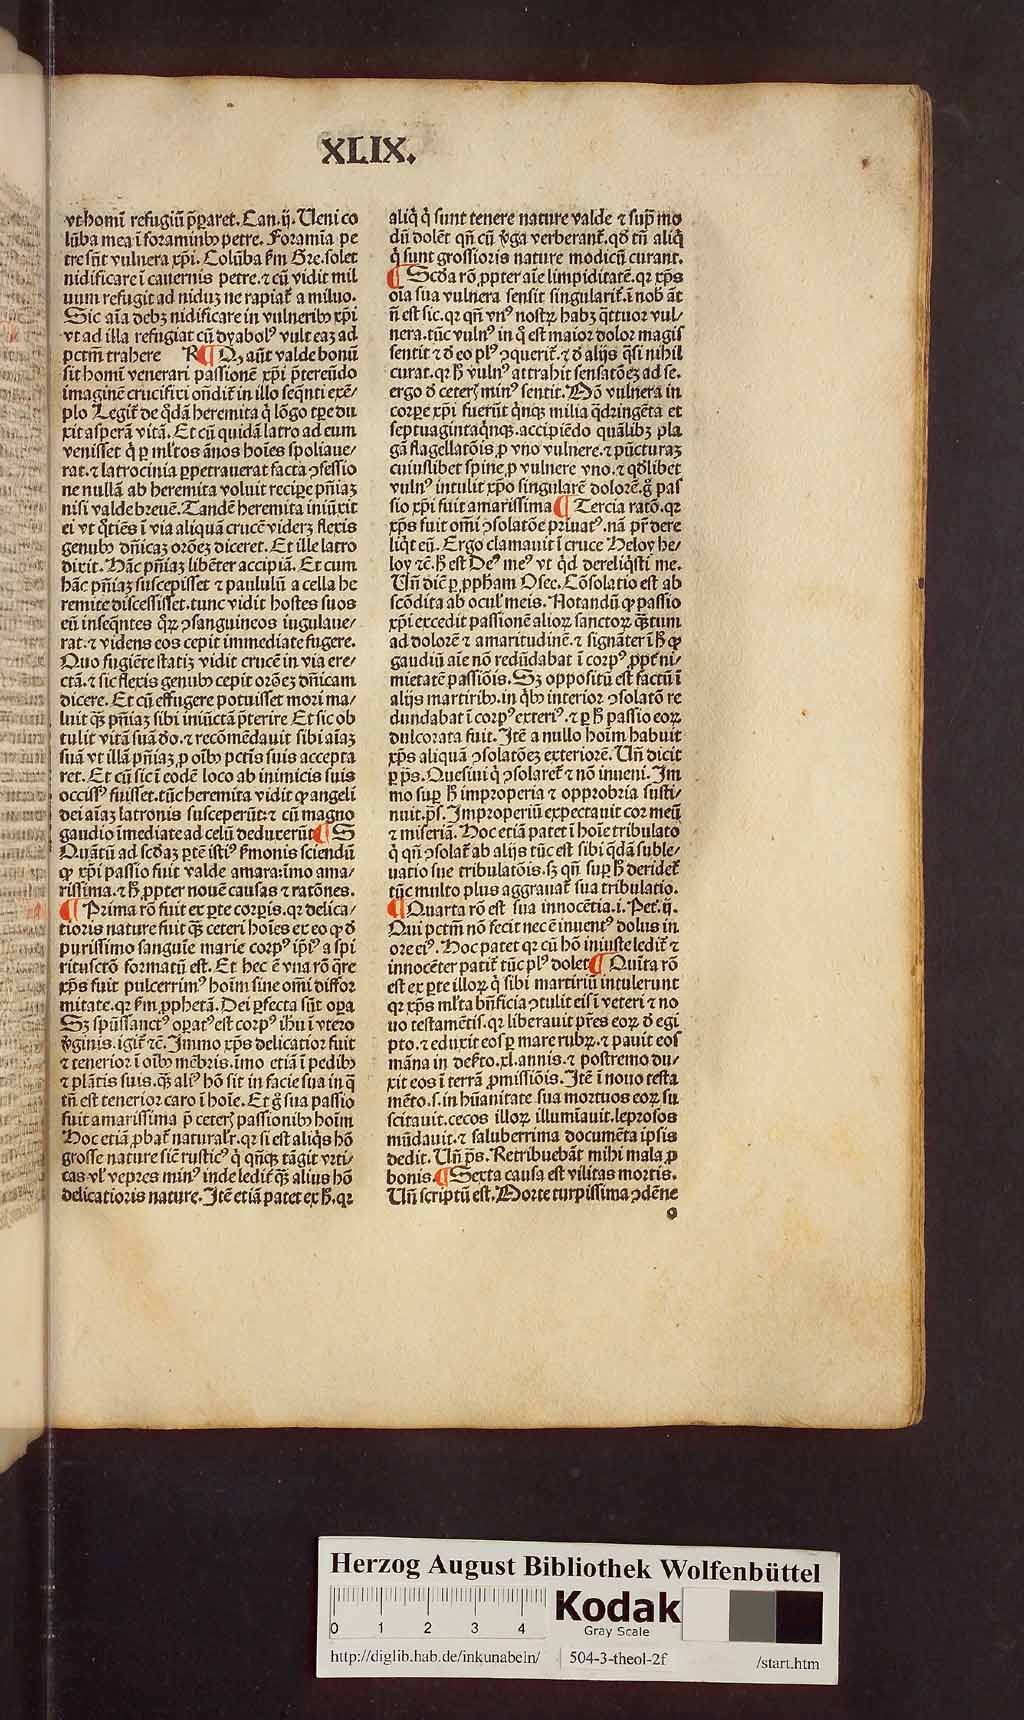 XLIX.
vt homī refugiū p̄pararet. Can. ij. Veni co
lūba mea ī foraminibꝰ petre. Foramīa pe
tre sūt vulnera xp̄i. Colūba ẜm Gre. solet
nidificare ī cauernis petre. ⁊ cū vidit mil
uum refugit ad niduꝫ ne rapiat᷑ a miluo.
Sic aīa debꝫ nidificare in vulneribꝰ xp̄i
vt ad illa refugiat cū dyabolꝰ vult eaꝫ ad
pctm̄ trahere R ¶ Qꝫ aūt valde bonū
sit homī venerari passionē xp̄i p̄tereūdo
imaginē crucifixi on̄dit᷑ in illo seqn̄ti exē/
plo Legit᷑ de q̄dā heremita q̇ lōgo tꝑe du
xit asperā vitā. Et cū quidā latro ad eum
venisset q̇ ꝑ ml̓tos ānos hoīes spoliaue/
rat. ⁊ latrocinia ꝑpetrauerat facta ↄfessio
ne nullā ab heremita voluit recipe pn̄iaꝫ
nisi valde breuē. Tandē heremita iniūxit
ei vt q̊tiēs ī via aliquā crucē viderꝫ flexis
genubꝰ dn̄icaꝫ orōeꝫ diceret. Et ille latro
dixit. Hāc pn̄iaꝫ libēter accipiā. Et cum
hāc pn̄iaꝫ suscepisset ⁊ paululū a cella he
remite discessisset. tunc vidit hostes suos
eū inseqn̄tes qͦꝝ ↄsanguineos iugulaue/
rat. ⁊ videns eos cepit immediate fugere.
Quo fugiēte statiꝫ vidit crucē in via ere/
ctā. ⁊ sic flexis genubꝰ cepit orōeꝫ dn̄icam
dicere. Et cū effugere potuisset mori ma/
luit qꝫ̄ pn̄iaꝫ sibi iniūctā p̄terire Et sic ob
tulit vitā suā d̊o. ⁊ recōmēdauit sibi aīaꝫ
suā vt illā pn̄iaꝫ ꝓ oībꝰ pctīs suis accepta
ret. Et cū sic ī eodē loco ab inimicis suis
occisꝰ fuisset. tūc heremita vidit ꝙ angeli
dei aīaꝫ latronis susceperūt: ⁊ cū magno
gaudio īmediate ad celū deduxerūt ¶ S
Quātū ad scd̓aꝫ ꝑtē istiꝰ ẜmonis sciendū
ꝙ xp̄i passio fuit valde amara: īmo ama/
rissima. ⁊ ħ ꝓpter nouē causas ⁊ ratōnes.
¶ Prima rō fuit ex ꝑte corꝑis. qꝛ delica/
tioris nature fuit qꝫ̄ ceteri hoīes ex eo ꝙ d̓
purissimo sanguīe marie corpꝰ ip̄iꝰ a spi
ritusctō formatū est. Et hec ē vna rō q̄re
xp̄s fuit pulcerrimꝰ hoīm sine om̄i diffor
mitate. qꝛ ẜm ꝓphetā. Dei ꝑfecta sūt oꝑa
Sꝫ spūssanctꝰ oꝑatꝰ est corpꝰ ih̄u ī vtero
v̓ginis. igit᷑ ⁊c̄. Immo xp̄s delicatior fuit
⁊ tenerior ī oībꝰ mēbris. īmo etiā ī pedibꝰ
⁊ plātis suis. qꝫ̄ aliꝰ hō sit in facie sua in q̇
tn̄ est tenerior caro ī hoīe. Et g̊ sua passio
fuit amarissima p̄ ceterꝭ passionibꝰ hoīm
Hoc etiā ꝓbat᷑ natural̓r. qꝛ si est aliq̇s hō
grosse nature sic̄ rusticꝰ q̇ qn̄qꝫ tāgit vrti/
cas vl̓ vepres minꝰ inde ledit᷑ qꝫ̄ alius hō
delicatioris nature. Itē etiā patet ex ħ. qꝛ
aliq̇ q̇ sunt tenere nature valde ⁊ suꝑ mo
dū dolēt qn̄ cū v̓ga verberant᷑. qd̓ tn̄ aliq̇
q̇ sunt grossioris nature modicū curant.
¶ Scd̓a rō ꝓpter aīe limpiditatē. qꝛ xp̄s
oīa sua vulnera sensit singularit᷑. ī nob̓ āt
n̄ est sic. qꝛ qn̄ vnꝰ nostꝝ habꝫ q̄ttuor vul/
nera. tūc vulnꝰ in q̊ est maior dolor magis
sentit ⁊ d̓ eo plꝰ ↄquerit᷑. ⁊ d̓ alijs q̄si nihil
curat. qꝛ ħ vulnꝰ attrahit sensatōeꝫ ad se.
ergo d̓ ceterꝭ minꝰ sentit. Nō vulnera in
corꝑe xp̄i fuerūt q̇nqꝫ milia q̄dringēta et
septuagintaq̇nqꝫ. accipiēdo quālibꝫ pla
gā flagellatōis ꝓ vno vulnere. ⁊ pūcturaꝫ
cuiuslibet spine ꝓ vulnere vno. ⁊ qd̓libet
vulnꝰ intulit xp̄o singularē dolorē. g̊ pas
sio xp̄i fuit amarissima ¶ Tercia ratō. qꝛ
xp̄s fuit om̄i ↄsolatōe priuatꝰ. nā pr̄ dere
liq̇t eū. Ergo clamauit ī cruce Heloy he/
loy ⁊c̄. ħ est Deꝰ meꝰ vt qd̓ dereliq̇sti me.
Vn̄ dic̄ ꝑ ꝓpham Osee. Cōsolatio est ab
scōdita ab ocul̓ meis. Notandū ꝙ passio
xp̄i excedit passionē alioꝝ sanctoꝝ q̄ꝫtum
ad dolorē ⁊ amaritudinē. ⁊ signāter ī ħ ꝙ
gaudiū aīe nō redūdabat ī corpꝰ ꝓpt᷑ ni/
mietatē passiōis. Sꝫ oppositū est factū ī
alijs martiribꝰ. in q̇bꝰ interior ↄsolatō re
dundabat ī corpꝰ exteriꝰ. ⁊ ꝑ ħ passio eoꝝ
dulcorata fuit. Itē a nullo hoīm habuit
xp̄s aliquā ↄsolatōeꝫ exteriorē. Vn̄ dicit
ꝑ ps̄. Quesiui q̇ ↄsolaret᷑ ⁊ nō inueni. Im
mo suꝑ ħ improperia ⁊ opprobria susti/
nuit. ps̄. Improperiū expectauit cor meū
⁊ miseriā. Hoc etiā patet ī hoīe tribulato
q̇ qn̄ ↄsolat᷑ ab alijs tūc est sibi q̄dā suble/
uatio sue tribulatōis. sꝫ qn̄ suꝑ ħ deridet᷑
tūc multo plus aggrauat᷑ sua tribulatio.
¶ Quarta rō est sua innocētia. i. Pet. ij.
Qui pctm̄ nō fecit nec ē inuentꝰ dolus in
ore eiꝰ. Hoc patet qꝛ cū hō iniuste ledit᷑ ⁊
innocēter patit᷑ tūc plꝰ dolet ¶ Quīta rō
est ex ꝑte illoꝝ q̇ sibi martiriū intulerunt
qꝛ xp̄s ml̓ta bn̄ficia ↄtulit eis ī veteri ⁊ no
uo testamētis. qꝛ liberauit pr̄es eoꝝ d̓ egi
pto. ⁊ eduxit eos ꝑ mare rubꝝ. ⁊ pauit eos
māna in dek̓to. xl. annis. ⁊ postremo du/
xit eos ī terrā ꝓmissiōis. Itē ī nouo testa
mēto. s. in hūanitate sua mortuos eoꝝ su
scitauit. cecos illoꝝ illumīauit. leprosos
mūdauit. ⁊ saluberrima documēta ipsis
dedit. Vn̄ ps̄. Retribuebāt mihi mala ꝓ
bonis. ¶ Sexta causa est vilitas mortis.
Vn̄ scriptū est. Morte turpissima ↄdēne
Herzog August Bibliothek Wolfenbüttel
0 1 2 3 4
Kodak
Gray Scale
http://diglib.hab.de/inkunabeln/ 504-3-theol-2f /start.htm